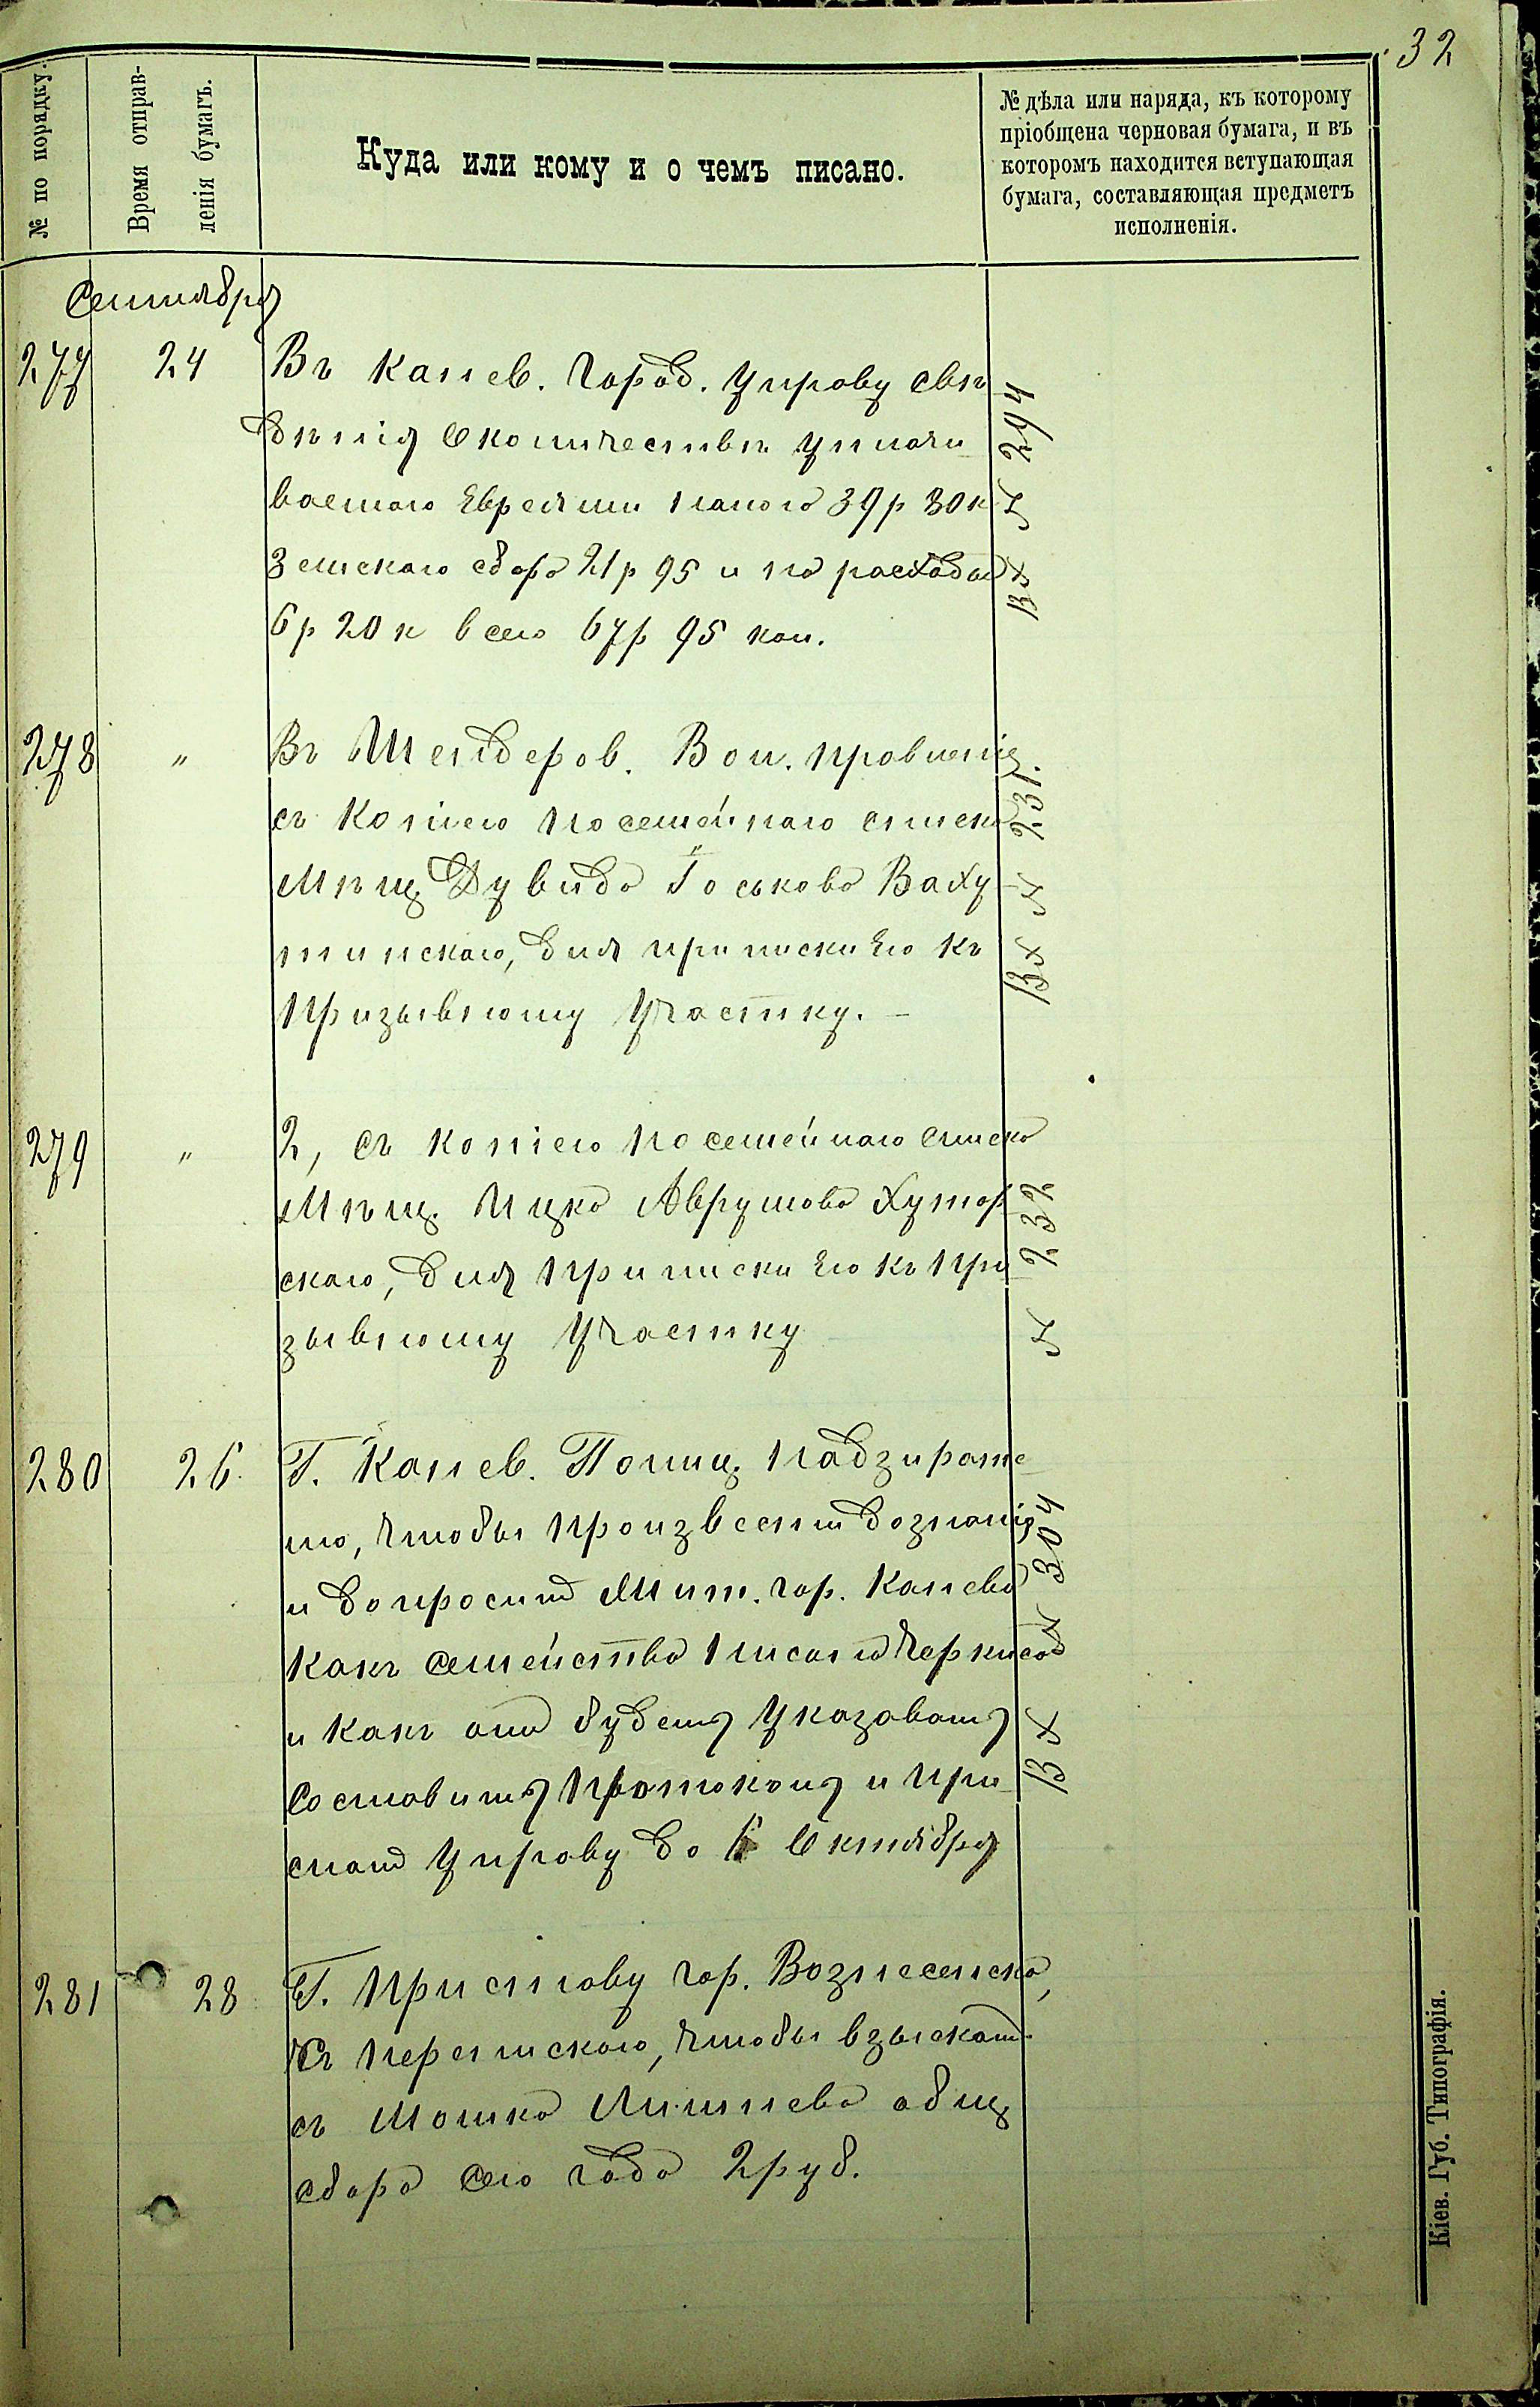 32
№ по порядку.
Время отправ-
ленія бумагъ.
Куда или кому и о чемъ писано.
№ дѣла или наряда, къ которому
пріобщена черновая бумага, и въ
которомъ находится вступающая
бумага, составляющая предметъ
исполненія.
Сентября
277 24 Въ Канев. Город. Управу свѣ
дѣнія о количествѣ уплачи
ваемаго Евреями налога 39 р 80 к
Земскаго сбора 21 р 95 и на расходы
6 р 20 к всего 67 р 95 коп.
Вх № 294
278 " Въ Шендеров. Вол. правленія
съ копіею посемейнаго списка
Мѣщ Дувида Іоськова Баху
тинскаго, для приписки Его къ
призывному Участку. –
Вх № 231.
279 " 2, съ копіею посемейнаго списка
Мѣщ. Ицка Аврумова Хутор
скаго, для приписки Его къ при
зывному Участку
№ 232
280 26. Г. Канев. Полиц. надзирате
лю, чтобы произвести дознанія
и допросить Жит. гор. Канева
какъ семейство
и какъ они будетъ Указовать
Составить Протоколъ и при
слать Управу до 6 Октября
Вх № 304
281 28 Г. Приставу гор. Вознесенска,
Херсонскаго, чтобы взыскать
съ Мошка общ
сбора сего года 2 руб.
Кіев. Губ. Типографія.